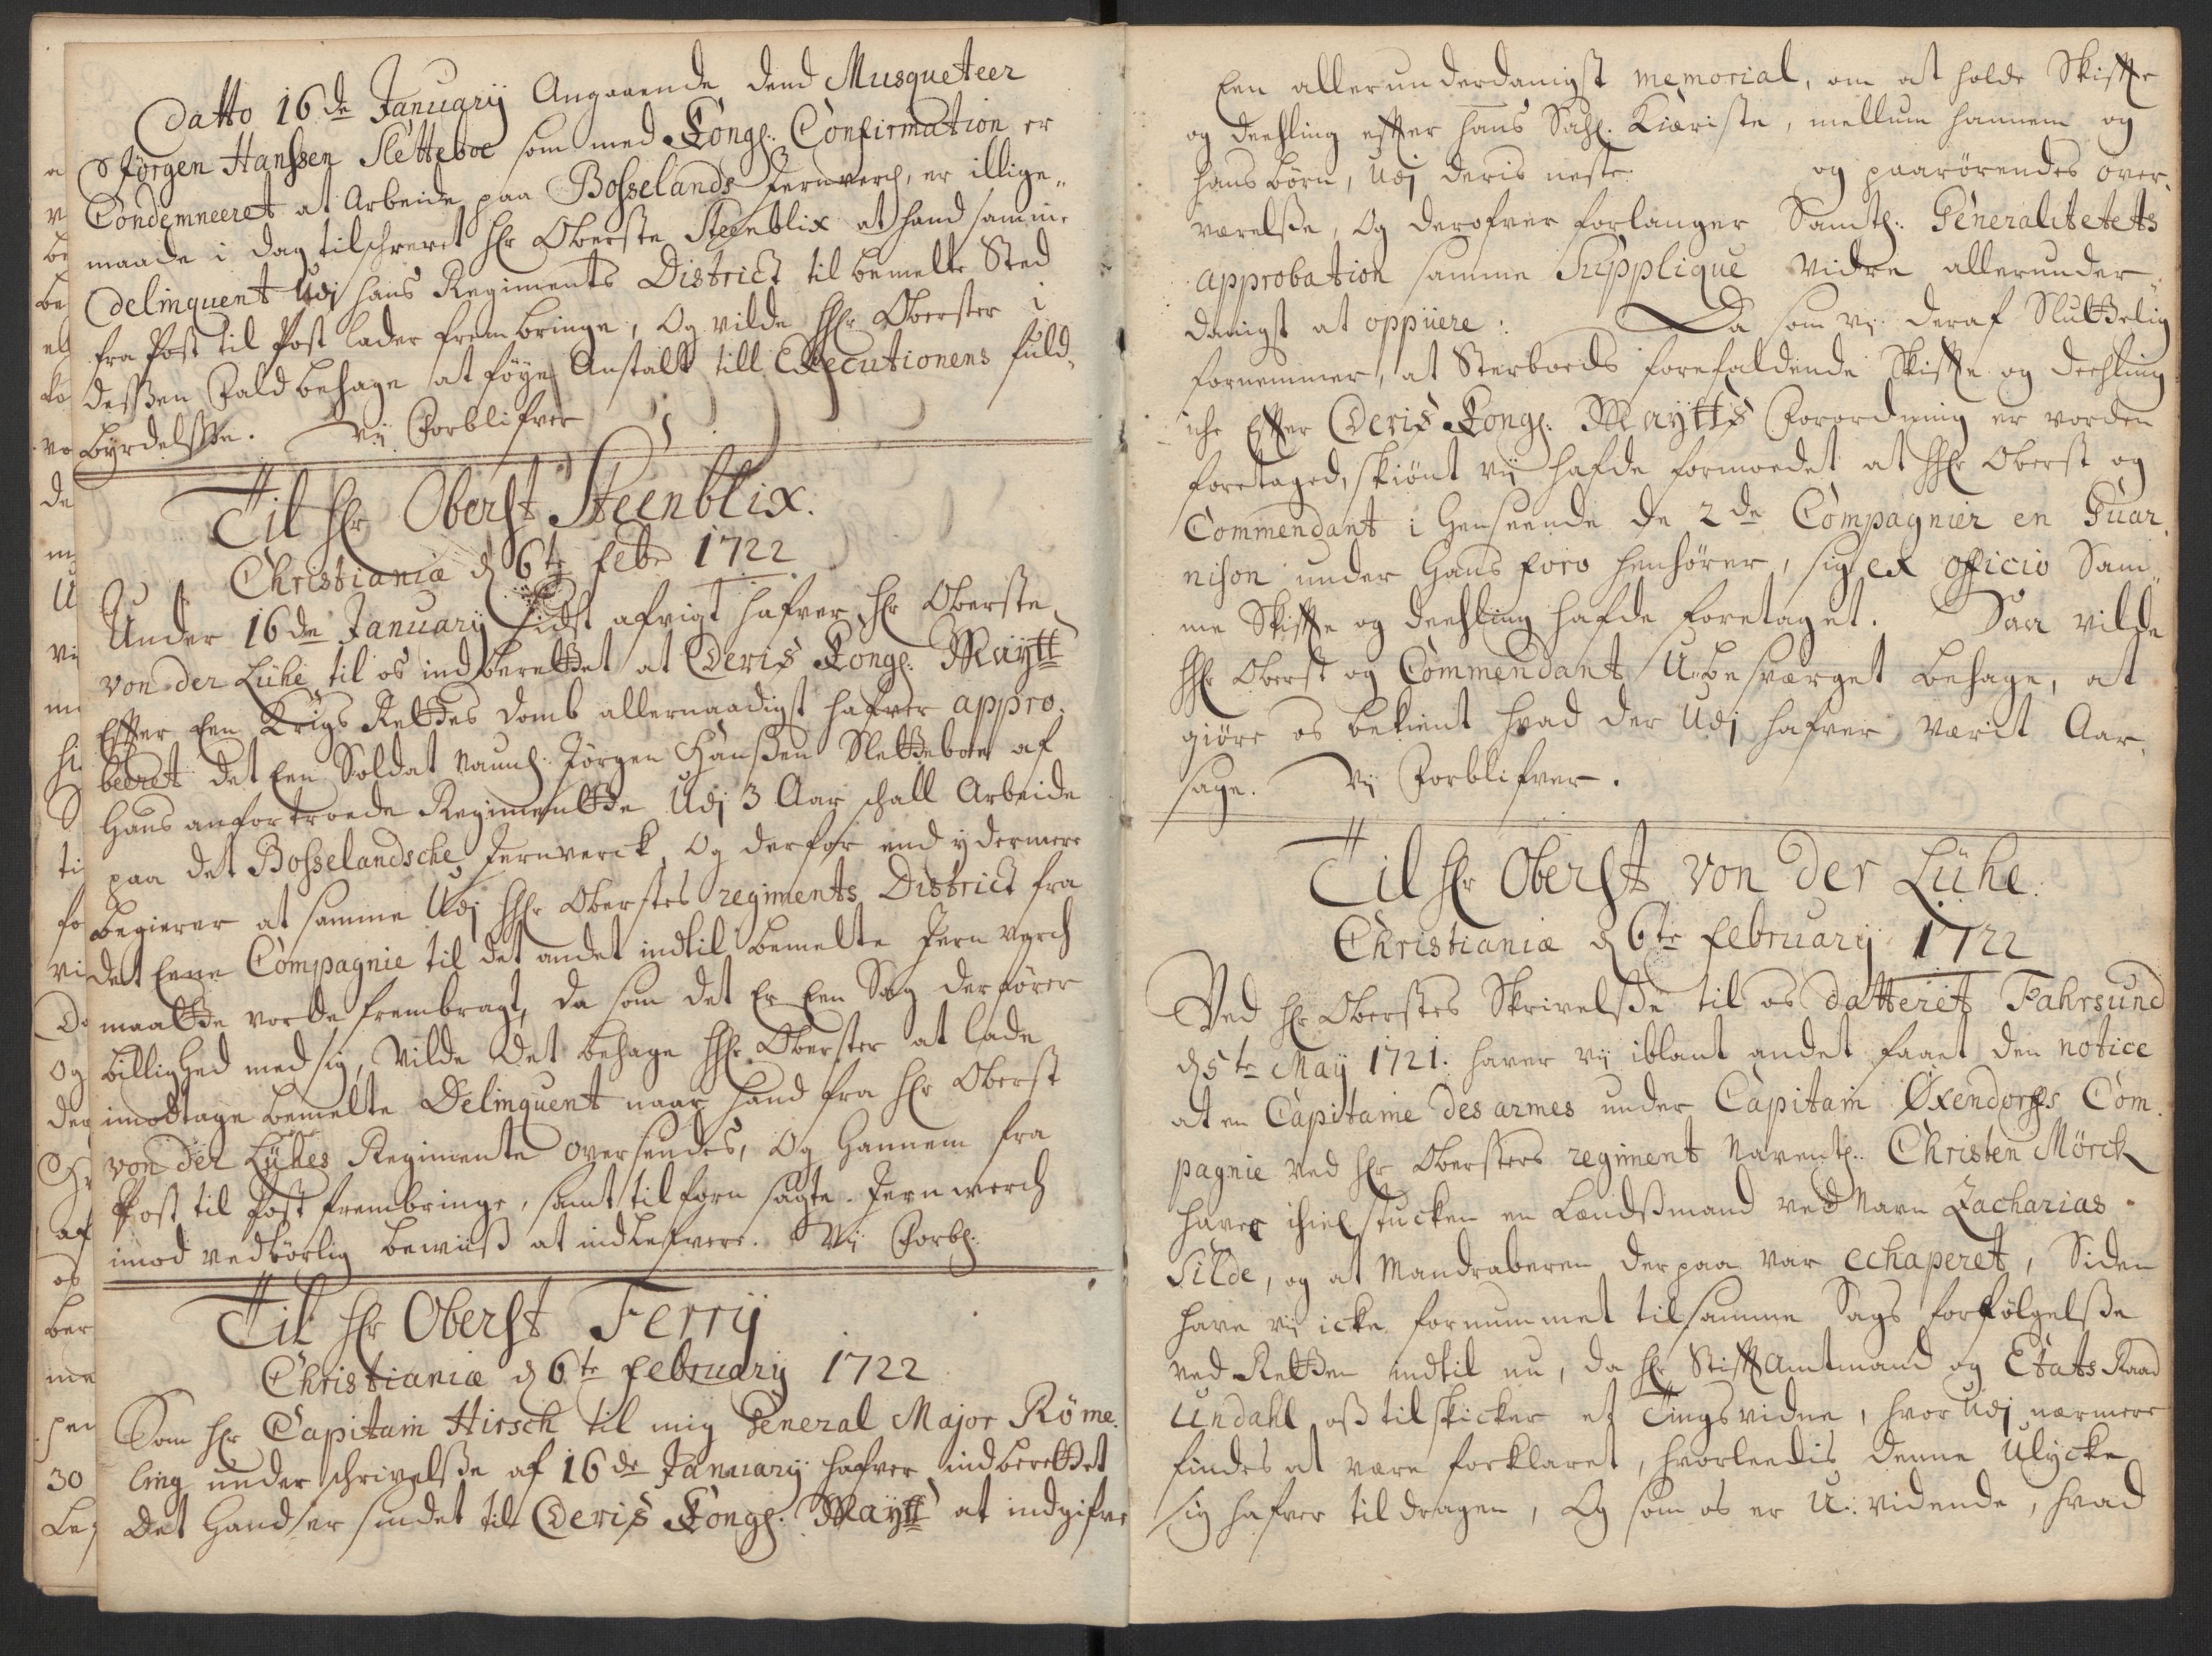 Datto 16de Januarij Angaaende dend Musqueteer
Jørgen Hanssen Sletteboe som med Kongl: Confirmation er
Condemneeret at Arbeide paa Bosselands Jernverch, er illige„
maade i dag tilschrevet Hr Oberste Steenblix at hand samme
Delinquent Udj hans Regiments District til bemelte Sted
fra Post til Post lader frembringe, Og vilde Hr Oberster i
dessen Fald behage at føye Anstalt till Executionens fuld„
byrdelsse. Vij Forblifver
Til Hr Oberst Steenblix.
Christiania d 6te Febr 1722
Under 16de Januarij sidst afvigt hafver Hr Oberste
von der Lühe til os indberettet at Deris Kongl: Maytt
Effter Een Krigs Rettes Domb allernaadigst hafver appro„
beeret det Een Soldat Naunl: Jørgen Hanssen Sletteboe af
Hans anfortroede Regimentte Udj 3 Aar schall Arbeide
paa det Bosselandsche Jernverck, Og derfor end ydermere
begierer at samme Udj Hr Oberstes regiments District fra
det Eene Compagnie til det andet indtil bemelte Jernverch
maatte vorde frembragt, da som det Er Een Sag der fører
billighed med sig, Vilde det behage Hr Oberster at lade
imodtage bemelte Delinquent naar hand fra Hr Oberst
von der Lühes Regimente oversendes, Og Hannem fra
Post til Post frembringe, samt til forn sagte Jernwerch
imod vedbørlig bewiiss at indlefvere. Vij Forbl:
Til Hr Oberst Ferrij
Christiania d 6te Februarij 1722
Som Hr Capitain Hirsch til mig General Major Röme„
ling under schrivelsse af 16de Januarij hafver indberettet
Det Hand er sindet til Deris Kongl: Maytt at indgifve
Een allerunderdanigst memorial, om at holde Skiffte
og deehling effter hans Sahl. Kiæriste, mellum hannem og
hans børn, Udj deris neste og paarørendes over„
værelsse, Og derofver forlanger Samtl: Generalitetets
approbation samme Supplique vidre allerunder„
danigst at oppiiere: Da som vij deraf Sluttelig
fornemmer, at Sterboeds forefaldende Skiffte og deehling
iche Effter Deris Kongl: Maytts Forordning er vorden
foretaged, skiønt vij hafde formoedet at Hr Oberst og
Commendant i Henseende de 2de Compagnier en Guar„
nison under Hans foro henhører, sig ex officio Sam„
me Skiffte og deehling hafde foretaget. Saa vilde
Hr Oberst og Commendant U-besværget behage, at
giøre os bekient hvad der Udj hafver værit Aar„
sage. Vij Forblifver.
Til Hr Oberst von der Lühe.
Christiania d 6te Februarij 1722
Ved Hr Oberstes Skrivelsse til os datteret Fahrsund
d 5te Maij 1721. haver vij iblant andet faaet den notice
at en Capitaine des armes under Capitain Øxendorffs Com„
pagnie ved Hr Obersters regiment Naventl: Christen Mörck
haver ihiel stucken en Landssmand ved Navn Zacharias
Silde, og at Mandraberen derpaa var echaperet, Siden
have vij icke fornummet til samme Sags forfølgelsse
ved Retten indtil nu, da Hr Stifftamtmand og Etats Raad
Undahl oss tilskicker et Tingsvidne, hvor udj nærmere
findes at være forklaret, hvorleedis denne Ulycke
sig hafver tildragen, Og som os er U-vidende, hvad